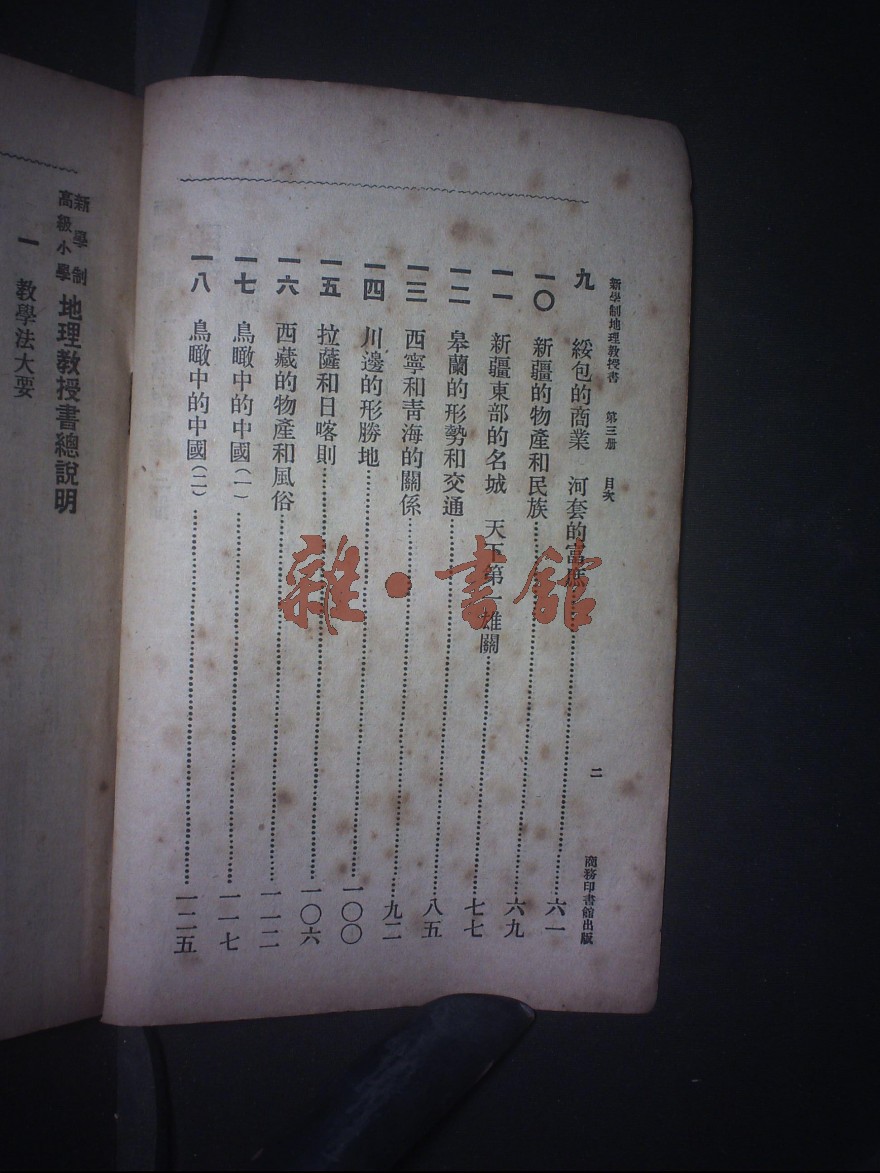 新學制地理教授書 第三册 目次 二 商務印書館出版
九 綏包的商業 河套的富庶 六一
一〇 新疆的物產和民族 六九
一一 新疆東部的名城 天下第一雄關 七七
一二 皋蘭的形勢和交通 八五
一三 西寧和靑海的關係 九二
一四 川邊的形勝地 一〇〇
一五 拉薩和日喀則 一〇六
一六 西藏的物產和風俗 一一二
一七 鳥瞰中的中國(一) 一一七
一八 鳥瞰中的中國(二) 一二五
新學制
高級小學
地理教授書總說明
一 教學法大要
雜·書館